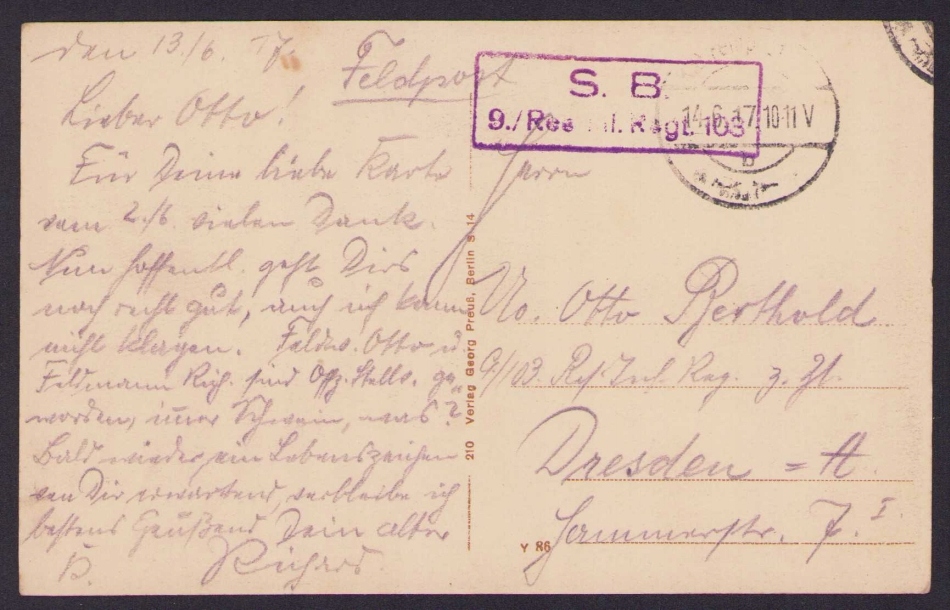 den 13/6. 17.
Feldpost
Lieber Otto!
Für Deine liebe Karte
vom 2./6. vielen Dank.
Nun hoffentl. geht Dirs
noch recht gut, auch ich kann
nicht klagen. Feldw. Otto u.
Feldmann Rich. sind Offz. Stellv. ge-
worden, immer Schwein, was?
Bald wieder ein Lebenszeichen
von Dir erwartend, verbleibe ich
bestens Grüßend Dein alter
Richard.
210 Verlag Georg Preuß, Berlin S 14
S. B.
9./Res. Inf. Regt. 103
14.6.17. 10-11 V
b
Herrn
Uo. Otto Berthold
9/103. Res. Inf. Reg. z. Zt.
Dresden = A.
Hammerstr. 7. I.
Y 86